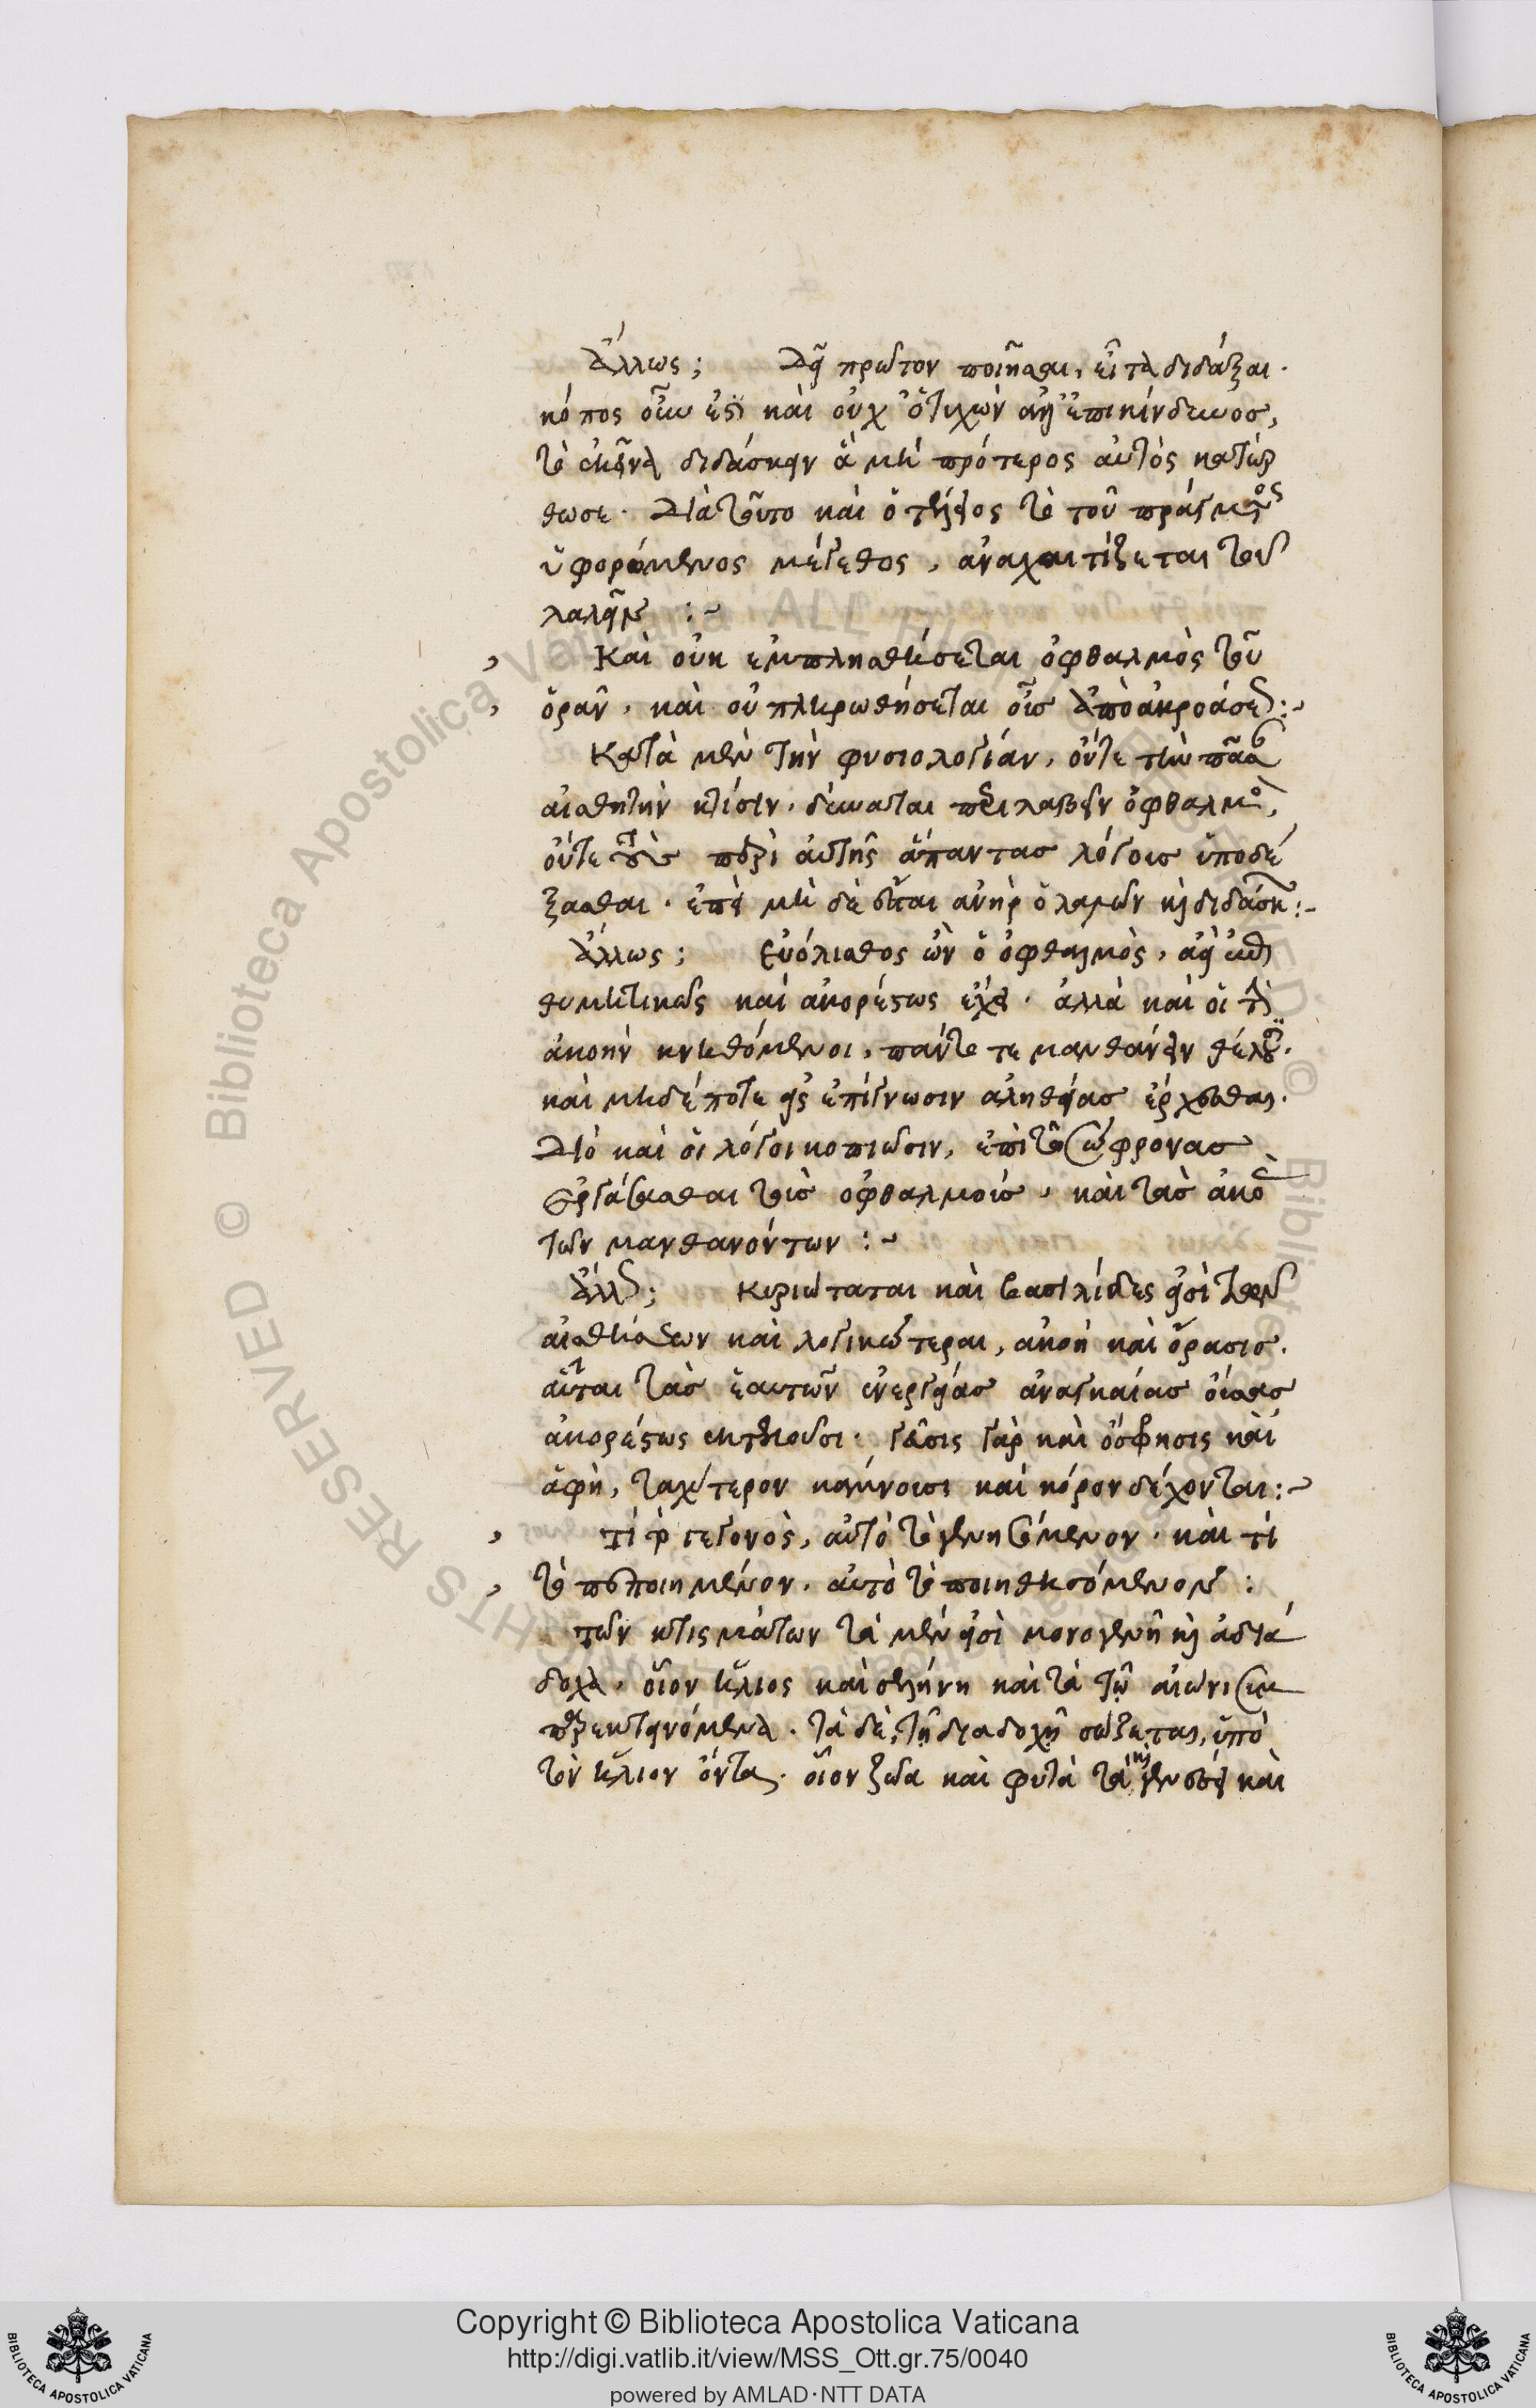 Ἄλλως; Δεῖ πρῶτον ποιῆσαι, εἶτα διδάξαι.
κόπος οὖν ἐστὶ καὶ οὐχ ὁ τυχὼν ἀλλ' ἐπικίνδυνος,
τὸ ἐκεῖνα διδάσκειν ἃ μὴ πρότερος αὐτὸς κατώρ
θωσε. Διὰ τοῦτο καὶ ὁ τέλειος τὸ τοῦ πράγματος
ὑφορώμενος μέγεθος, ἀναχαιτίζεται τοῦ
λαλεῖν :~
Καὶ οὐκ ἐμπλησθήσεται ὀφθαλμὸς τοῦ
ὁρᾶν, καὶ οὐ πληρωθήσεται οὖς ἀπὸ ἀκροάσεως:~
Κατὰ μὲν τὴν φυσιολογίαν, οὔτε τὴν πᾶσαν
αἰσθητὴν κτίσιν, δύναται περιλαβεῖν ὀφθαλμός,
οὔτε τοὺς περὶ αὐτῆς ἅπαντας λόγους ὑποδέ
ξασθαι. ἐπεὶ μὴ δὲ ἀνὴρ ὁ λαλῶν καὶ διδάσκων:~
Ἄλλως; Εὐόλισθος ὢν ὁ ὀφθαλμὸς, ἀεὶ ἐπι
θυμητικῶς καὶ ἀκορέστως ἔχει. ἀλλὰ καὶ οἱ τὴν
ἀκοὴν κνηθόμενοι, πάντοτε μανθάνειν θέλουσι.
καὶ μηδέποτε εἰς ἐπίγνωσιν ἀληθείας ἔρχεσθαι.
Διὸ καὶ οἱ λόγοι κοπιῶσιν, ἐπὶ τὸ σώφρονας
ἐργάσασθαι τοὺς ὀφθαλμοὺς, καὶ τὰς ἀκοὰς
τῶν μανθανόντων :~
Ἄλλως; Κυριώταται καὶ βασιλίδες εἰσὶ τῶν
αἰσθήσεων καὶ λογικώτεραι, ἀκοὴ καὶ ὅρασις.
αὗται τὰς ἑαυτῶν ἐνεργείας ἀναγκαίας οὔσας
ἀκορέστως ἐκτελοῦσι. γεῦσις γὰρ καὶ ὄσφρησις καὶ
ἁφὴ, ταχύτερον κάμνουσι καὶ κόρον δέχονται:~
Τί τὸ γεγονὸς, αὐτὸ τὸ γενησόμενον. καὶ τί
τὸ πεποιημένον, αὐτὸ τὸ ποιηθησόμενον :
Τῶν κτισμάτων τὰ μὲν εἰσὶ μονογενῆ καὶ ἀδιά
δοχα. οἷον ἥλιος καὶ σελήνη καὶ τὰ τῷ αἰῶνι συμ
παρεκτεινόμενα. τὰ δὲ, τῇ διαδοχῇ σώζεται, ὑπὸ
τὸν ἥλιον ὄντα. οἷον ζῶα καὶ φυτὰ τὰ καὶ γενέσει καὶ
Copyright © Biblioteca Apostolica Vaticana
http://digi.vatlib.it/view/MSS_Ott.gr.75/0040
powered by AMLAD·NTT DATA